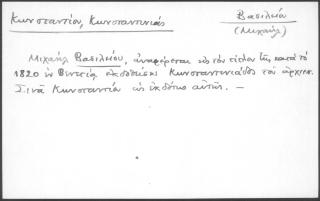 Κωνσταντίου, Κωνσταντινιάς
Βασιλείου
(Μιχαήλ)
Μιχαήλ Βασιλείου, ἀναφέρεται εἰς τὸν τίτλον τῆς κατὰ τὸ
1820 ἐν Βενετίᾳ ἐκδόσεως Κωνσταντινιάδος τοῦ ἀρχιεπ.
Σινᾶ Κωνσταντίου ὡς ἐκδότης αὐτῆς. —